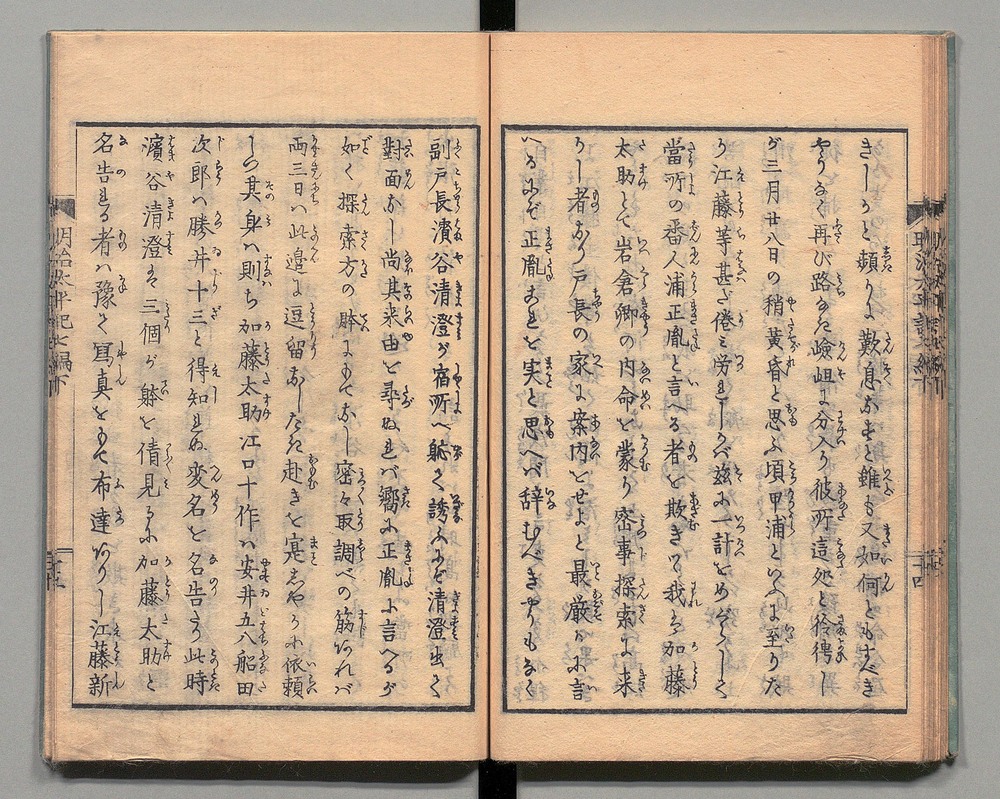 きしかと頻りに歎息なすと雖も又如何ともすべき
やうなく再び路なき嶮岨に分入り彼所這処と彷徨し
が三月廿八日の稍黄昏と思ふ頃甲浦といふに至りた
り江藤等甚だ倦み労れしかバ茲に一計をめぐらしく
當所の番人浦正胤と言へる者を欺きて我ハ加藤
太助とて岩倉卿の内命を蒙り密事探索に来
りし者なり戸長の家に案内をせよと最厳かに言
へるにぞ正胤これを実と思へバ辞むべきやうもなく
副戸長濱谷清澄が宿所へ躰く誘ふにぞ清澄出て
對面なし尚其来由を尋ぬれバ嚮に正胤に言へるが
如く探索方の躰にもてなし密々取調べの筋あれバ
両三日ハ此邉に逗留なしたき赴きを寔しやかに依頼
しつ其身ハ則ち加藤太助江口十作ハ安井五八船田
次郎ハ勝井十三と得知れぬ変名を名告り此時
濱谷清澄ハ三個が躰を倩見るに加藤太助と
名告れる者ハ豫て冩真をもて布達ありし江藤新
明治太平記七編下